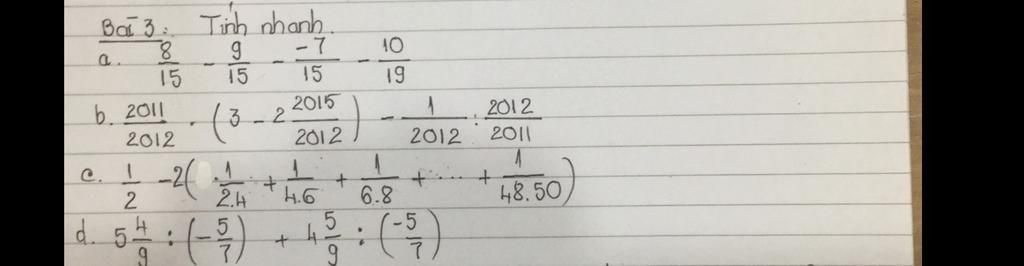 Bài 3: Tính nhanh.
a. 8/15 - 9/15 - -7/15 - 10/19
b. 2011/2012 . (3 - 2 2015/2012) - 1/2012 : 2012/2011
c. 1/2 - 2(1/2.4 + 1/4.6 + 1/6.8 + ... + 1/48.50)
d. 5 4/9 : (-5/7) + 4 5/9 : (-5/7)